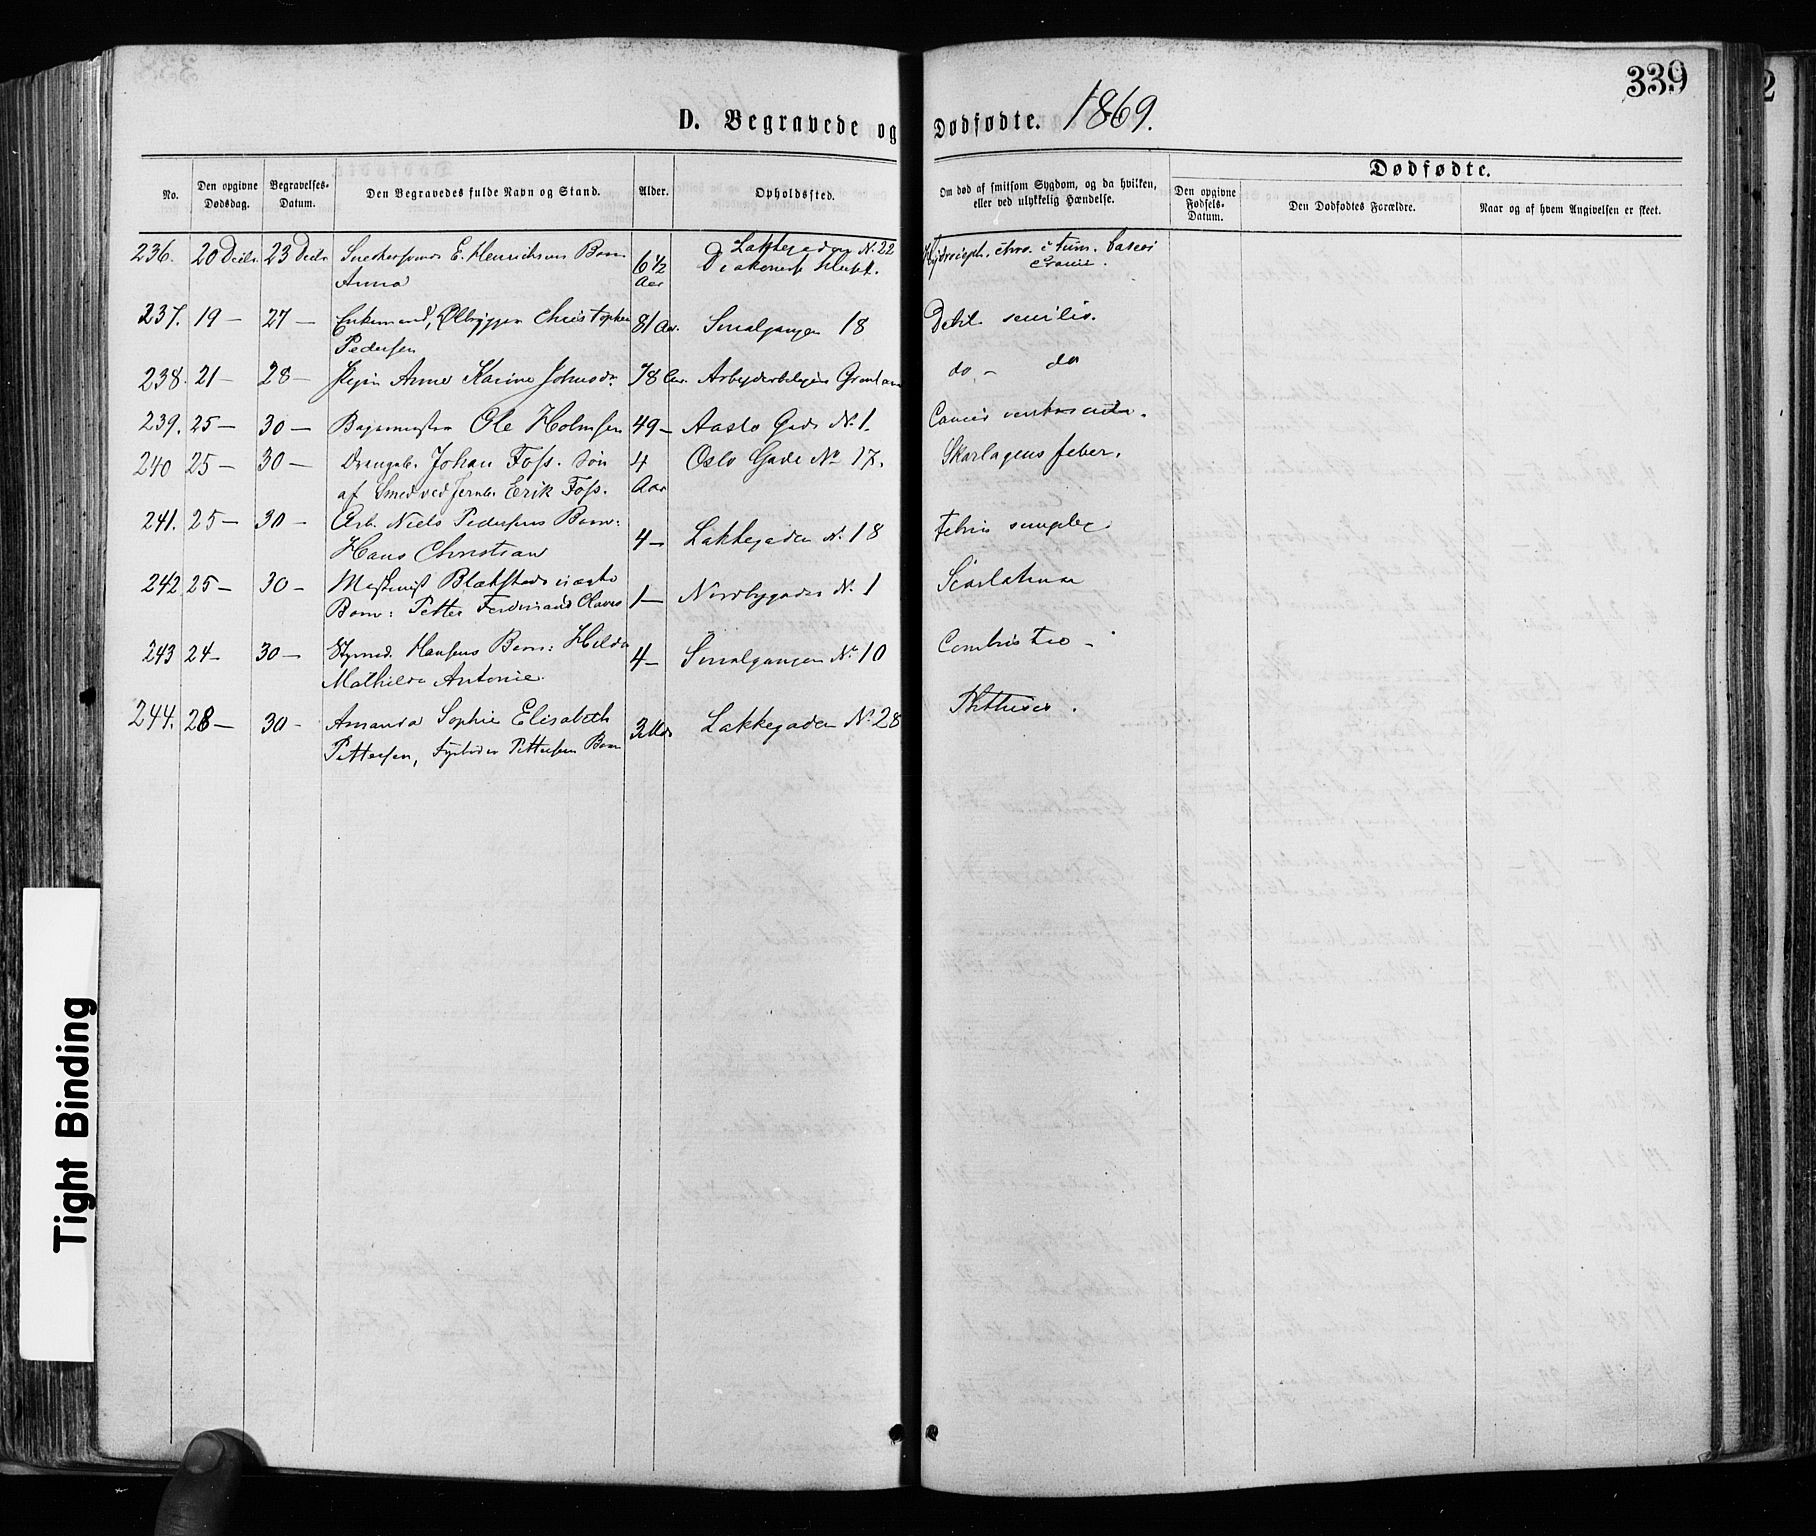 339
D. Begravede og Dødfødte. 1869.
No.
Den opgivne Dødsdag.
Begravelses-Datum.
Den Begravedes fulde Navn og Stand.
Alder.
Opholdssted.
Om død af smitsom Sygdom, og da hvilken, eller ved ulykkelig Hændelse.
Dødfødte.
Den opgivne Fødsels-Datum.
Den Dødfødtes Forældre.
Naar og af hvem Angivelsen er skeet.
236. 20 Decbr. 23 Decbr. E. Henriksens Barn 6 1/2 Lakkegaden N. 22
Anna Aar
237. 19 — 27 — Enkemand, Ølbrygger Christopher 81 Aar. Smalgangen 18 Debil. senilis.
Pedersen
238. 21 — 28 — Anne Karine Johnsdr 78 Aar. do — do
239. 25 — 30 — Ole Holmsen 49 — Aaslo Gade N. 1.
240 25 — 30 — Johan Foss. Søn 4 Oslo Gade No 17. Skarlagens feber.
af Smed ved Jernb. Erik Foss. Aar
241. 25 — 30 — Arb. Niels Pedersens Barn: 4 — Lakkegaden N. 18 Febris simplex.
Hans Christian
242 25 — 30 — Maskinist Blakstads ægte 1 — Nordbygaden N. 1 Scarlatina
Barn: Petter Ferdinand Claus
243 24 — 30 — Styrmd. Hansens Barn: Hilda 4 — Smalgangen No 10 Combustio —
Mathilde Antonie.
244. 28 — 30 — Amanda Sophie Elisabeth 3 Mdr Lakkegaden N. 28 Phthisis.
Pettersen, Fyrbøder Pettersens Barn
Tight Binding
2